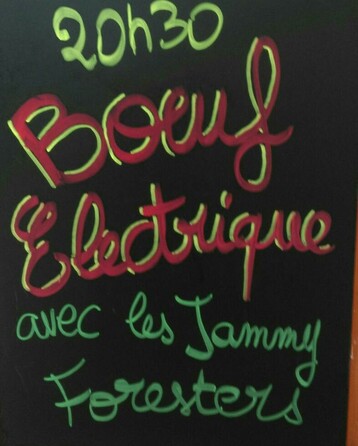 20h30
Boeuf
Electrique
avec les Jammy
Foresters